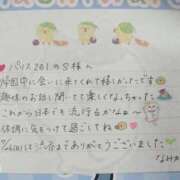 パリス201のS様へ
帰国中に会いに来てくれて嬉しかったです
趣味のお話し聞いてて楽しくなっちゃった
これから日本でも流行るかなぁ〜
体調に気をつけて過ごしてね
ありがとうございました